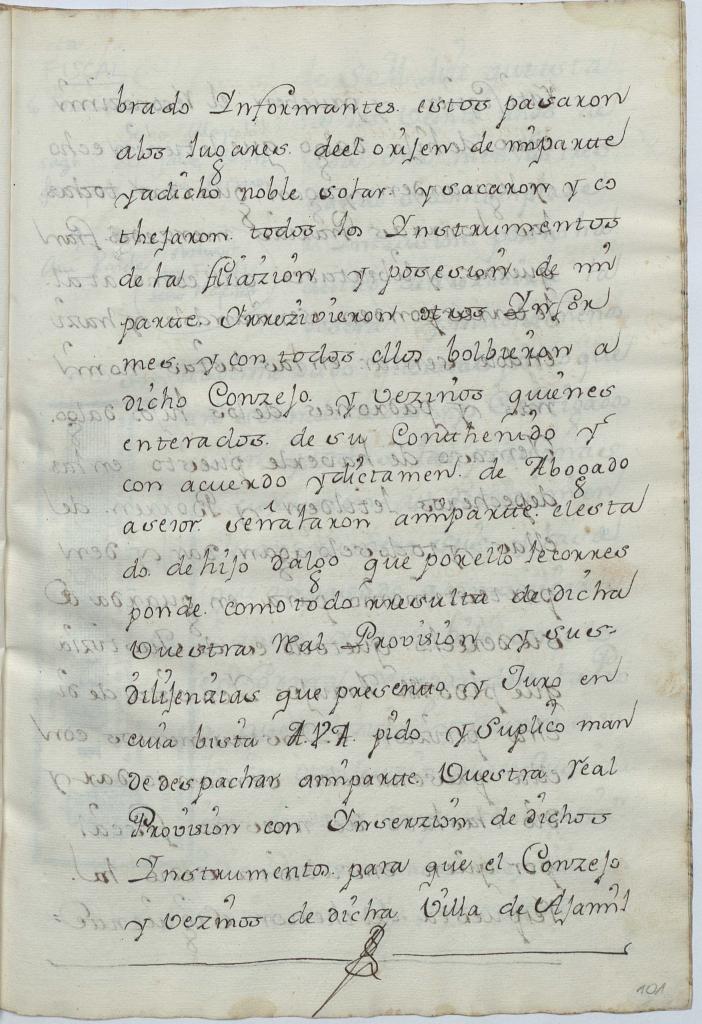 brado Informantes. estos pasaron
alos lugares. deel orijen de mi partte
yadicho noble solar. y sacaron y co
thejaron. todos los Instrumentos
de la filiazion y posesion de mi
partte. Y rrezivieron otros Infor
mes y con todos ellos bolbieron a
dicho Conzejo. y vezinos quienes
enterados. de su Conthenido y
con acuerdo ydictamen. de Abogado
asesor señalaron amipartte. elesta
do. de hijo dalgo que por ello le corres
ponde. como todo rresulta de dicha
Vuestra Real Provision y sus-
dilijenzias que presento y Juro en
cuia bista A.V.A. pido y Suplico man
de despachar amipartte. Vuestra real
Provision con Inserzion de dichos
Instrumentos. para que el Conzejo
y vezinos de dicha Villa de Ajamil
101